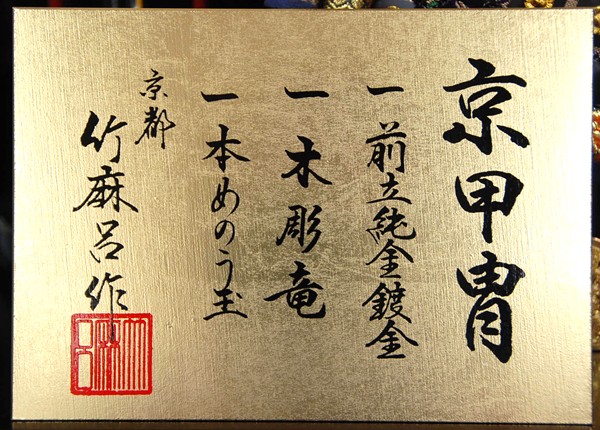 京甲冑
一 前立純金鍍金
一 木彫竜
一 本めのう玉
京都
竹麻呂作